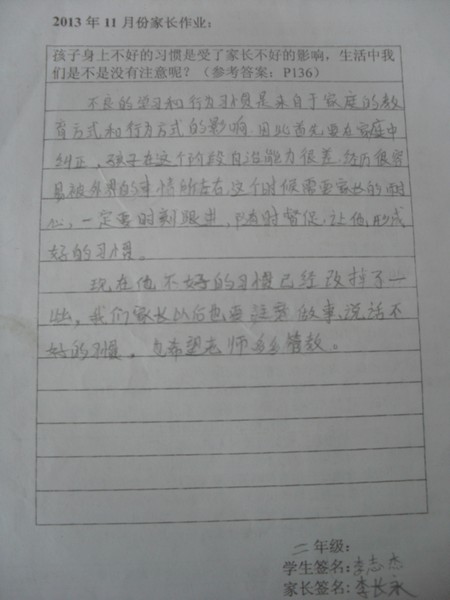 2013 年 11 月份家长作业：
孩子身上不好的习惯是受了家长不好的影响，生活中我
们是不是没有注意呢？（参考答案：P136）
不良的学习和行为习惯是来自于家庭的教
育方式和行为方式的影响，因此首先要在家庭中
纠正，孩子在这个阶段自治能力很差，经历很容
易被外界的事情所左右，这个时候需要家长的耐
心，一定要时刻跟进，随时督促，让他形成
好的习惯。
现在他不好的习惯已经改掉了一
些，我们家长以后也要注意做事、说话不
好的习惯，也希望老师多多管教。
二年级：
学生签名：李志杰
家长签名：李长永